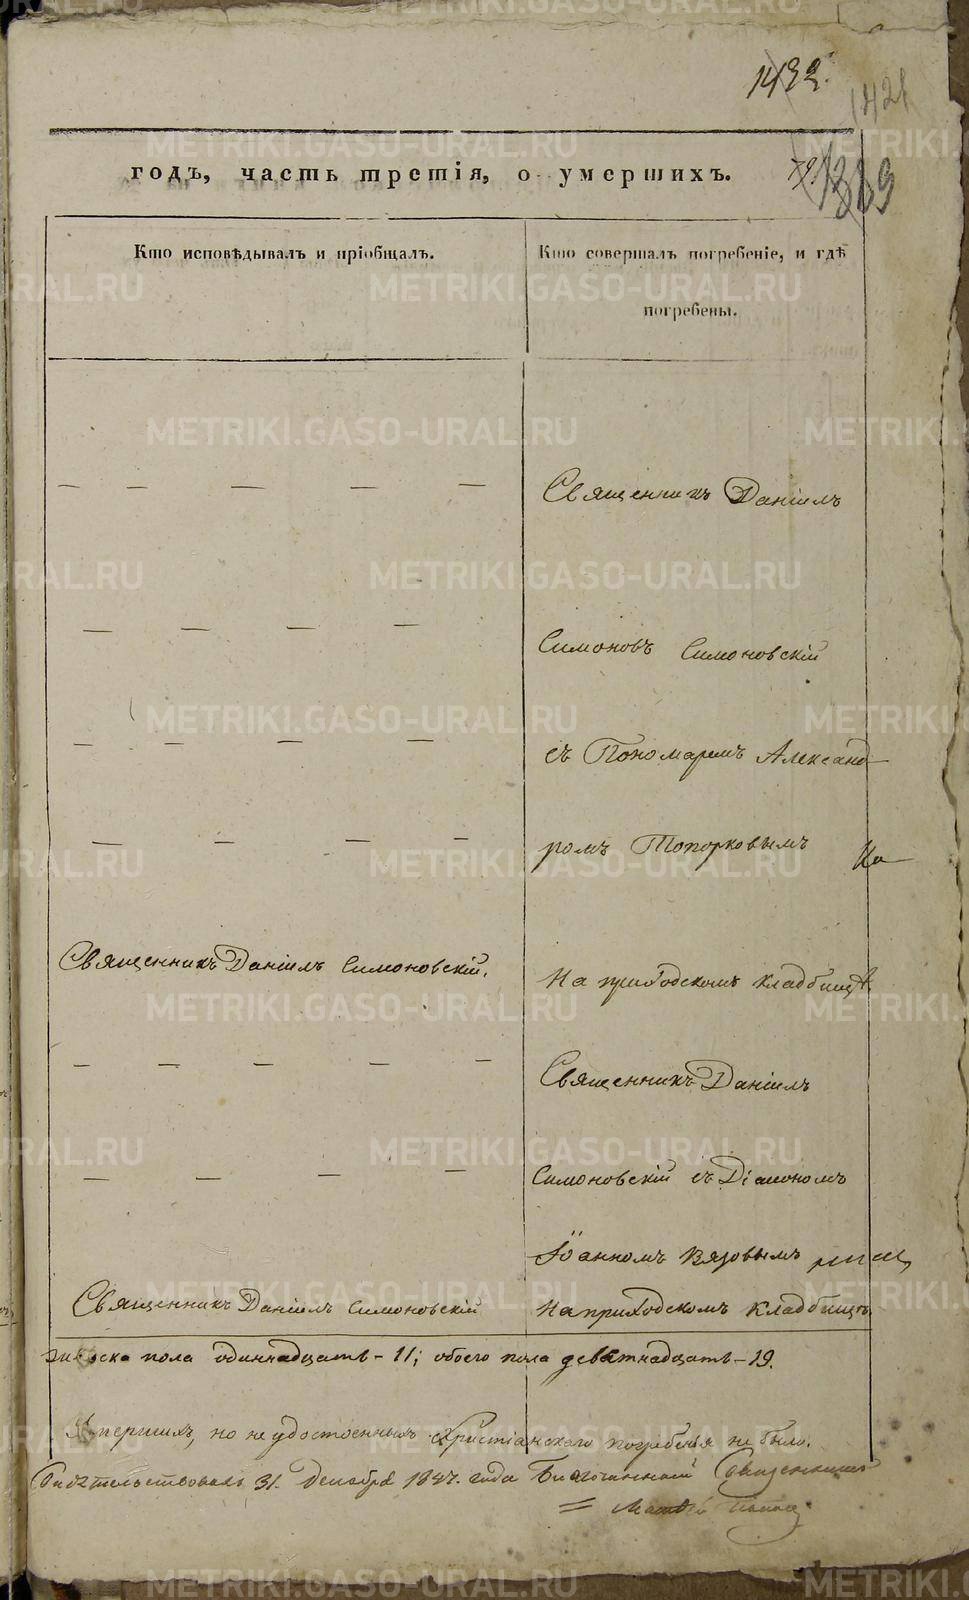 1432.
1421
1319
годъ, часть третія, о умершихъ.
Кто исповѣдывалъ и пріобщалъ.
Кто совершалъ погребеніе, и гдѣ
погребены.
— — — — —
Священникъ Даніилъ
— — — —
Симоновъ Симоновскій
— — — —
съ Пономаремъ Александ-
— — — —
ромъ Топорковымъ На
Священникъ Даніилъ Симоновскій.
На приходскомъ кладбищѣ.
— — — — —
Священникъ Даніилъ
— — — —
Симоновскій съ Діакономъ
Іоанномъ Вязовымъ
Священникъ Даніилъ Симоновскій
На приходскомъ кладбищѣ
женска пола одиннадцать - 11; обоего пола девятнадцать - 19.
Умершихъ, но не удостоенныхъ Христіанскаго погребенія не было.
Свидѣтельствовалъ 31. Декабря 1847. года Благочинный Священникъ
METRIKI.GASO-URAL.RU